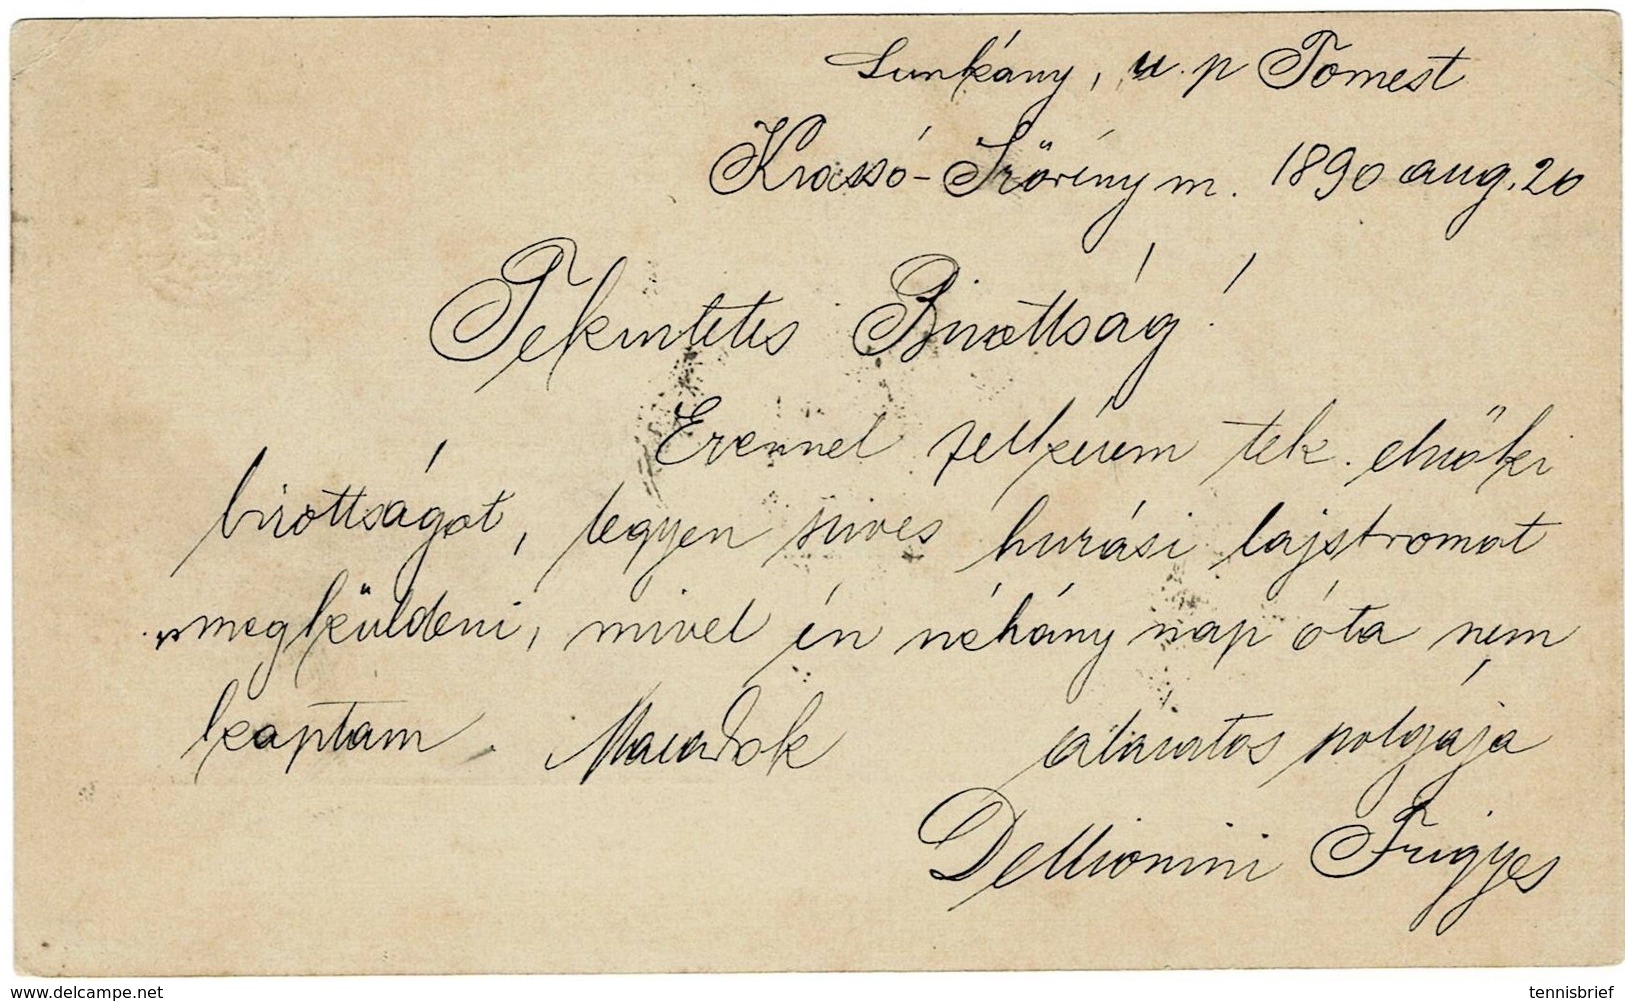 Lunkány, u. p Tomest
Krassó-Szörény m. 1890 aug. 20
Tekintetes Bizottság!
Ezennel felkérem tek. elnöki
bizottságot, legyen szives huzási lajstromat
megküldeni, mivel én néhány nap óta nem
kaptam. Maradok alázatos polgája
Frigyes
www.delcampe.net
tennisbrief